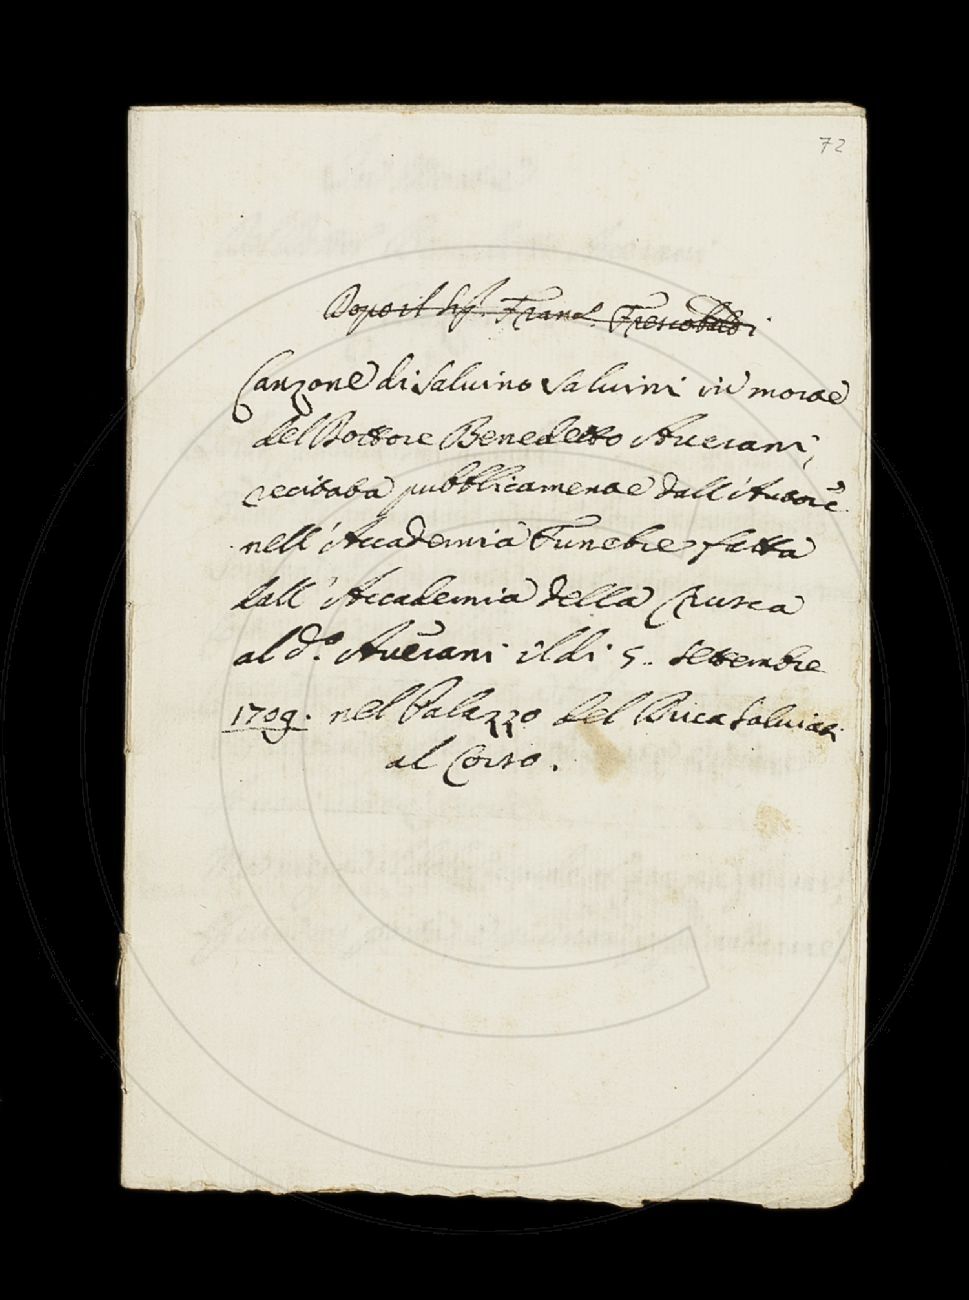 72
Dopo il Sig.r Franc.o Frescobaldi
Canzone di Salvino Salvini in morte
del Dottore Benedetto Averani,
recitata pubblicamente dall'Autore
nell'Accademia Funebre fatta
dall'Accademia della Crusca
al d.o Averani il dì 5. Settembre
1709. nel Palazzo del Duca Salviati
al Corso.